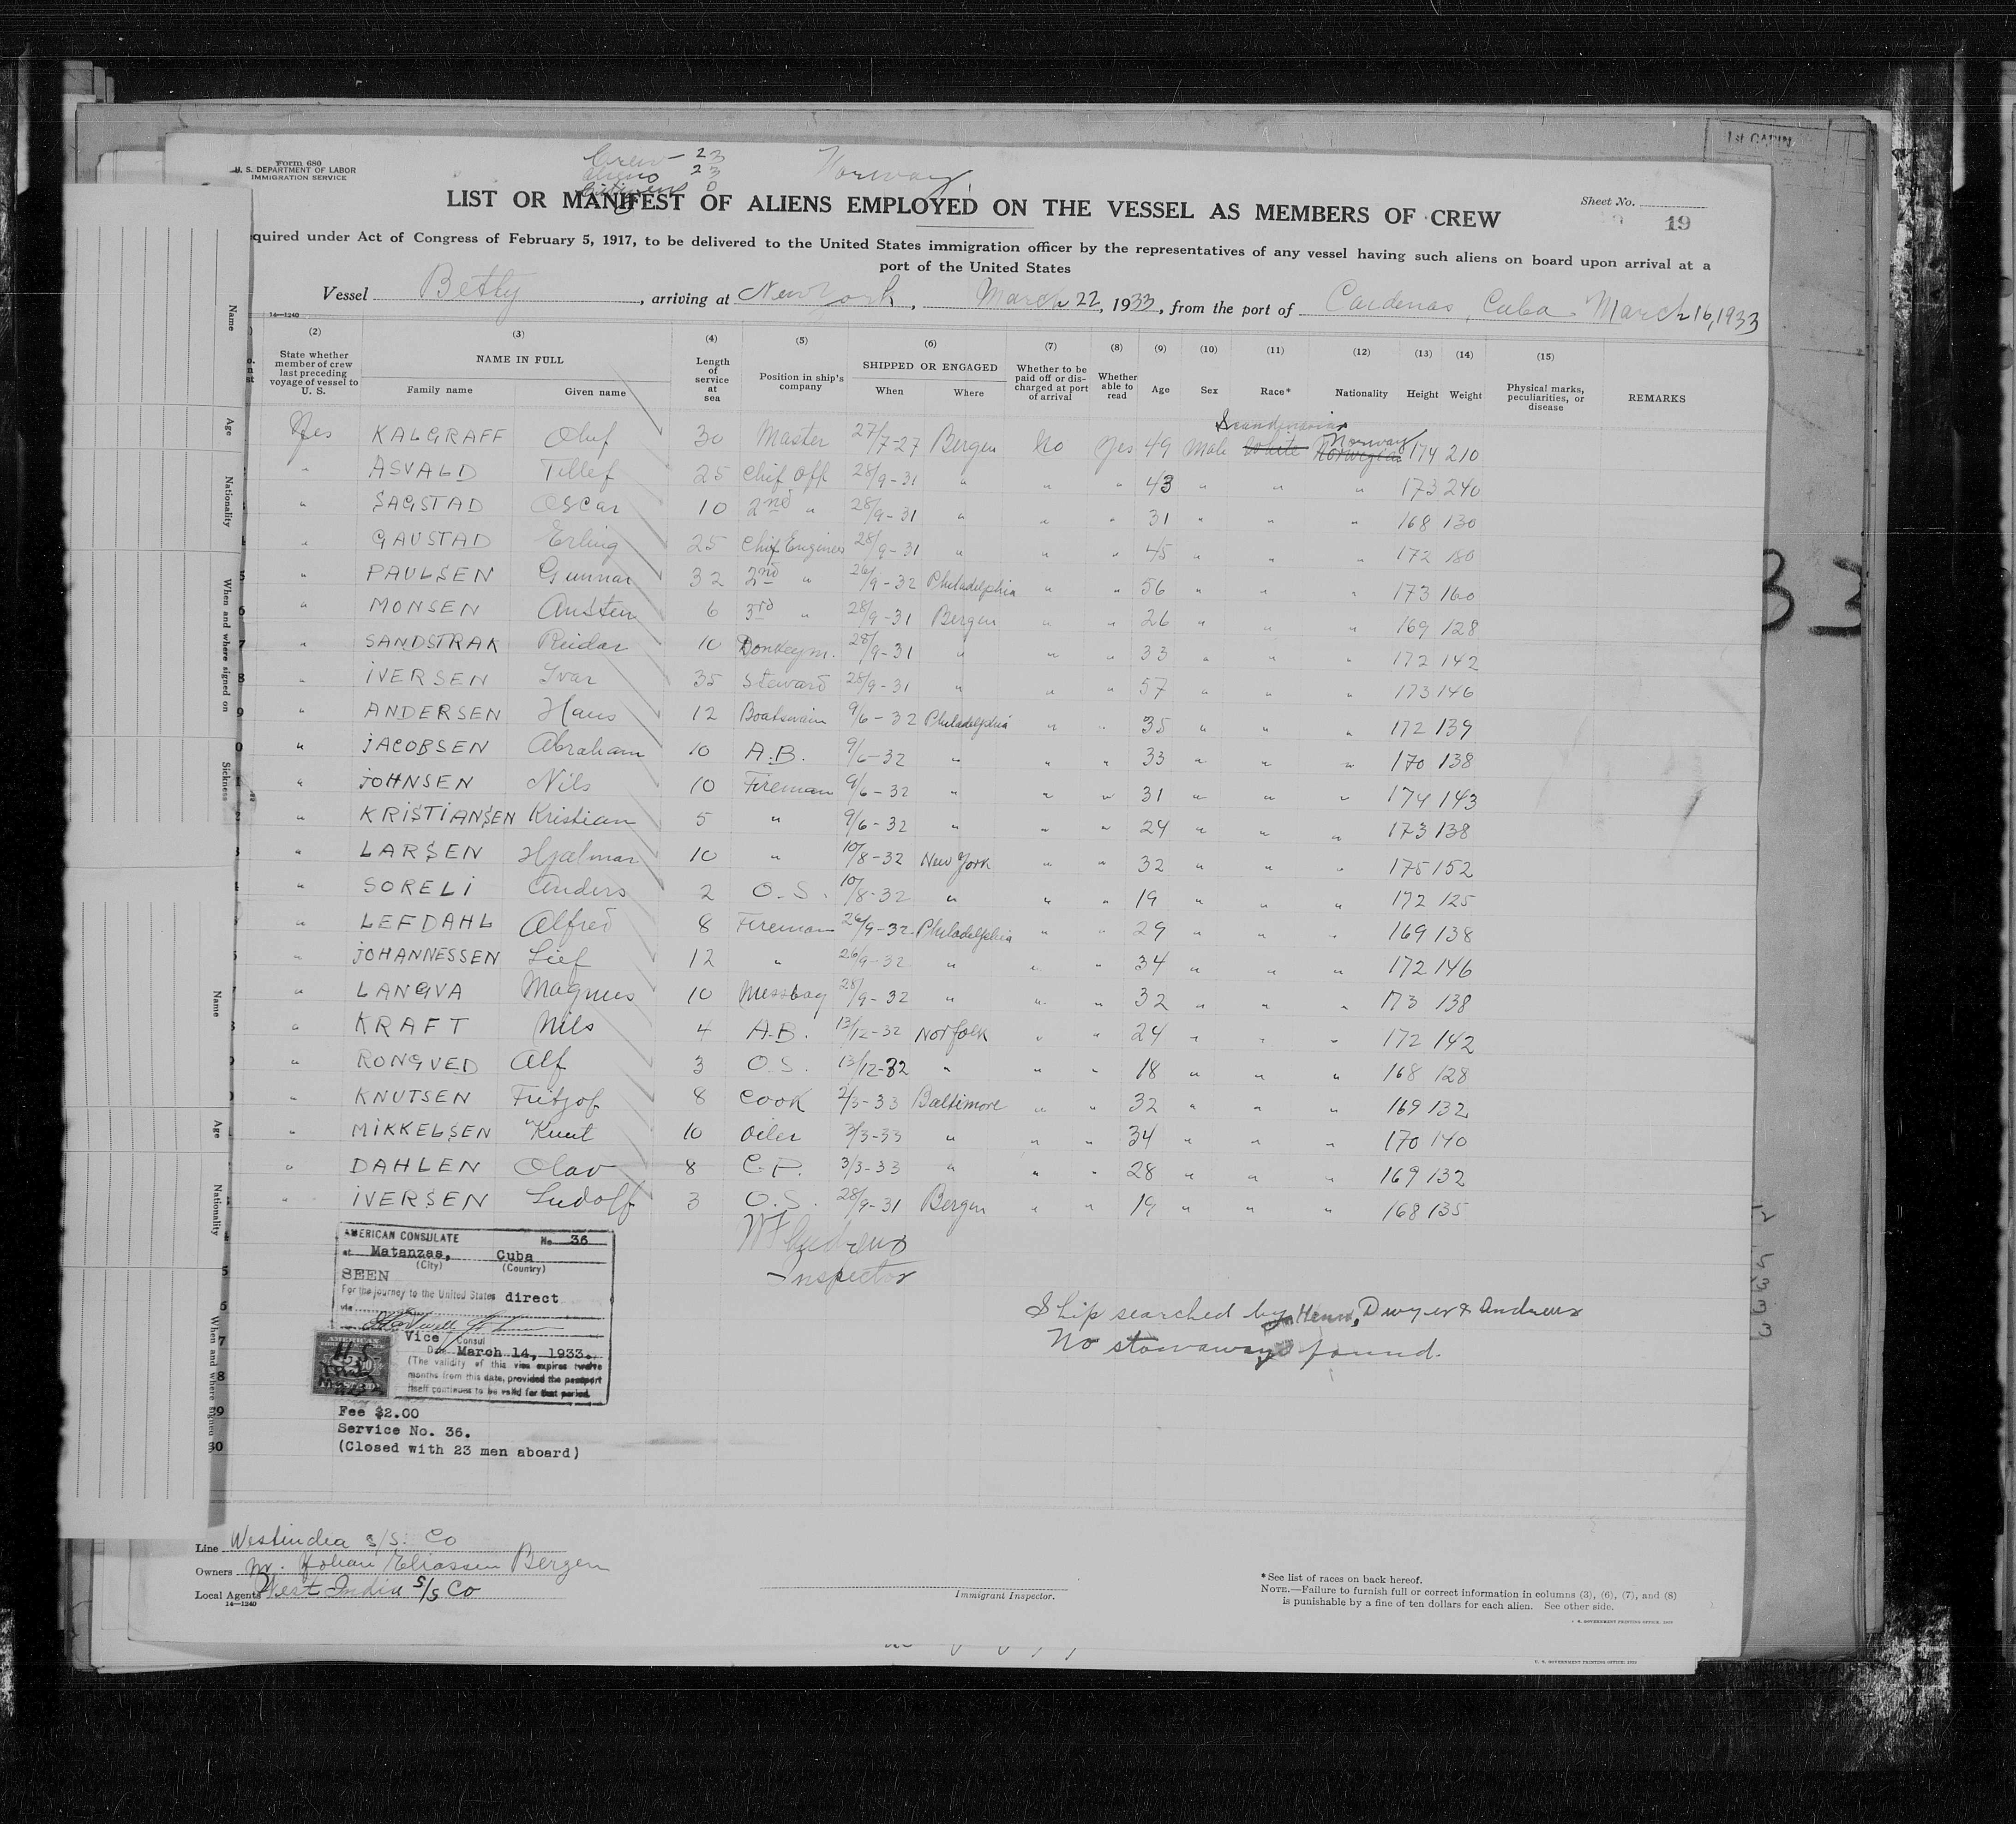 1st CABIN
Form 680
U. S. DEPARTMENT OF LABOR
IMMIGRATION SERVICE
Crew - 23
Aliens 23
Citizens 0
Norway
Sheet No.
19
LIST OR MANIFEST OF ALIENS EMPLOYED ON THE VESSEL AS MEMBERS OF CREW
quired under Act of Congress of February 5, 1917, to be delivered to the United States immigration officer by the representatives of any vessel having such aliens on board upon arrival at a
port of the United States
Vessel Betty, arriving at New York, March 22, 1933, from the port of Cardenas, Cuba March 16, 1933
14—1240
(2) (3) (4) (5) (6) (7) (8) (9) (10) (11) (12) (13) (14) (15)
State whether member of crew last preceding voyage of vessel to U. S. NAME IN FULL Family name Given name Length of service at sea Position in ship's company SHIPPED OR ENGAGED When Where Whether to be paid off or discharged at port of arrival Whether able to read Age Sex Race* Nationality Height Weight Physical marks, peculiarities, or disease REMARKS
Scandinavian Norway
Yes KALGRAFF Oluf 30 Master 27/7-27 Bergen No Yes 49 Male White Norwegian 174 210
" ASVALD Tellef 25 Chif Off 28/9-31 " " " 43 " " " 173 240
" SAGSTAD Oscar 10 2nd " 28/9-31 " " " 31 " " " 168 130
" GAUSTAD Erling 25 Chif Engineer 28/9-31 " " " 45 " " " 172 180
" PAULSEN Gunnar 32 2nd " 26/9-32 Philadelphia " " 56 " " " 173 160
" MONSEN Austen 6 3rd " 28/9-31 Bergen " " 26 " " " 169 128
" SANDSTRAK Reidar 10 Donkeym. 28/9-31 " " " 33 " " " 172 142
" IVERSEN Ivar 35 Steward 28/9-31 " " " 57 " " " 173 146
" ANDERSEN Hans 12 Boatswain 9/6-32 Philadelphia " " 35 " " " 172 139
" JACOBSEN Abraham 10 A.B. 9/6-32 " " " 33 " " " 170 138
" JOHNSEN Nils 10 Fireman 9/6-32 " " " 31 " " " 174 143
" KRISTIANSEN Kristian 5 " 9/6-32 " " " 24 " " " 173 138
" LARSEN Hjalmar 10 " 10/8-32 New York " " 32 " " " 175 152
" SORELI Anders 2 O.S. 10/8-32 " " " 19 " " " 172 125
" LEFDAHL Alfred 8 Fireman 26/9-32 Philadelphia " " 29 " " " 169 138
" JOHANNESSEN Lief 12 " 26/9-32 " " " 34 " " " 172 146
" LANGVA Magnus 10 Messboy 28/9-32 " " " 32 " " " 173 138
" KRAFT Nils 4 A.B. 13/12-32 Norfolk " " 24 " " " 172 142
" RONGVED Alf 3 O.S. 13/12-32 " " " 18 " " " 168 128
" KNUTSEN Fritjof 8 Cook 2/3-33 Baltimore " " 32 " " " 169 132
" MIKKELSEN Knut 10 Oiler 3/3-33 " " " 34 " " " 170 140
" DAHLEN Olav 8 C.P. 3/3-33 " " " 28 " " " 169 132
" IVERSEN Ludolf 3 O.S. 28/9-31 Bergen " " 19 " " " 168 135
Andrews
Inspector
AMERICAN CONSULATE No. 36
at Matanzas, Cuba
(City) (Country)
SEEN
For the journey to the United States direct
via
Vice Consul
Date March 14, 1933.
(The validity of this visa expires twelve
months from this date, provided the passport
itself continues to be valid for that period.
AMERICAN
Fee $2.00
Service No. 36.
(Closed with 23 men aboard)
Ship searched by Dwyer & Andrews
No stowaways found.
Line Westindia S/S. Co
Owners Mr. Johan Eliassen Bergen
Local Agents West India S/S Co
14—1240
Immigrant Inspector.
* See list of races on back hereof.
NOTE.—Failure to furnish full or correct information in columns (3), (6), (7), and (8)
is punishable by a fine of ten dollars for each alien. See other side.
U. S. GOVERNMENT PRINTING OFFICE
Name
Age
Nationality
When and where signed on
Sickness
Name
Age
Nationality
When and where signed
33